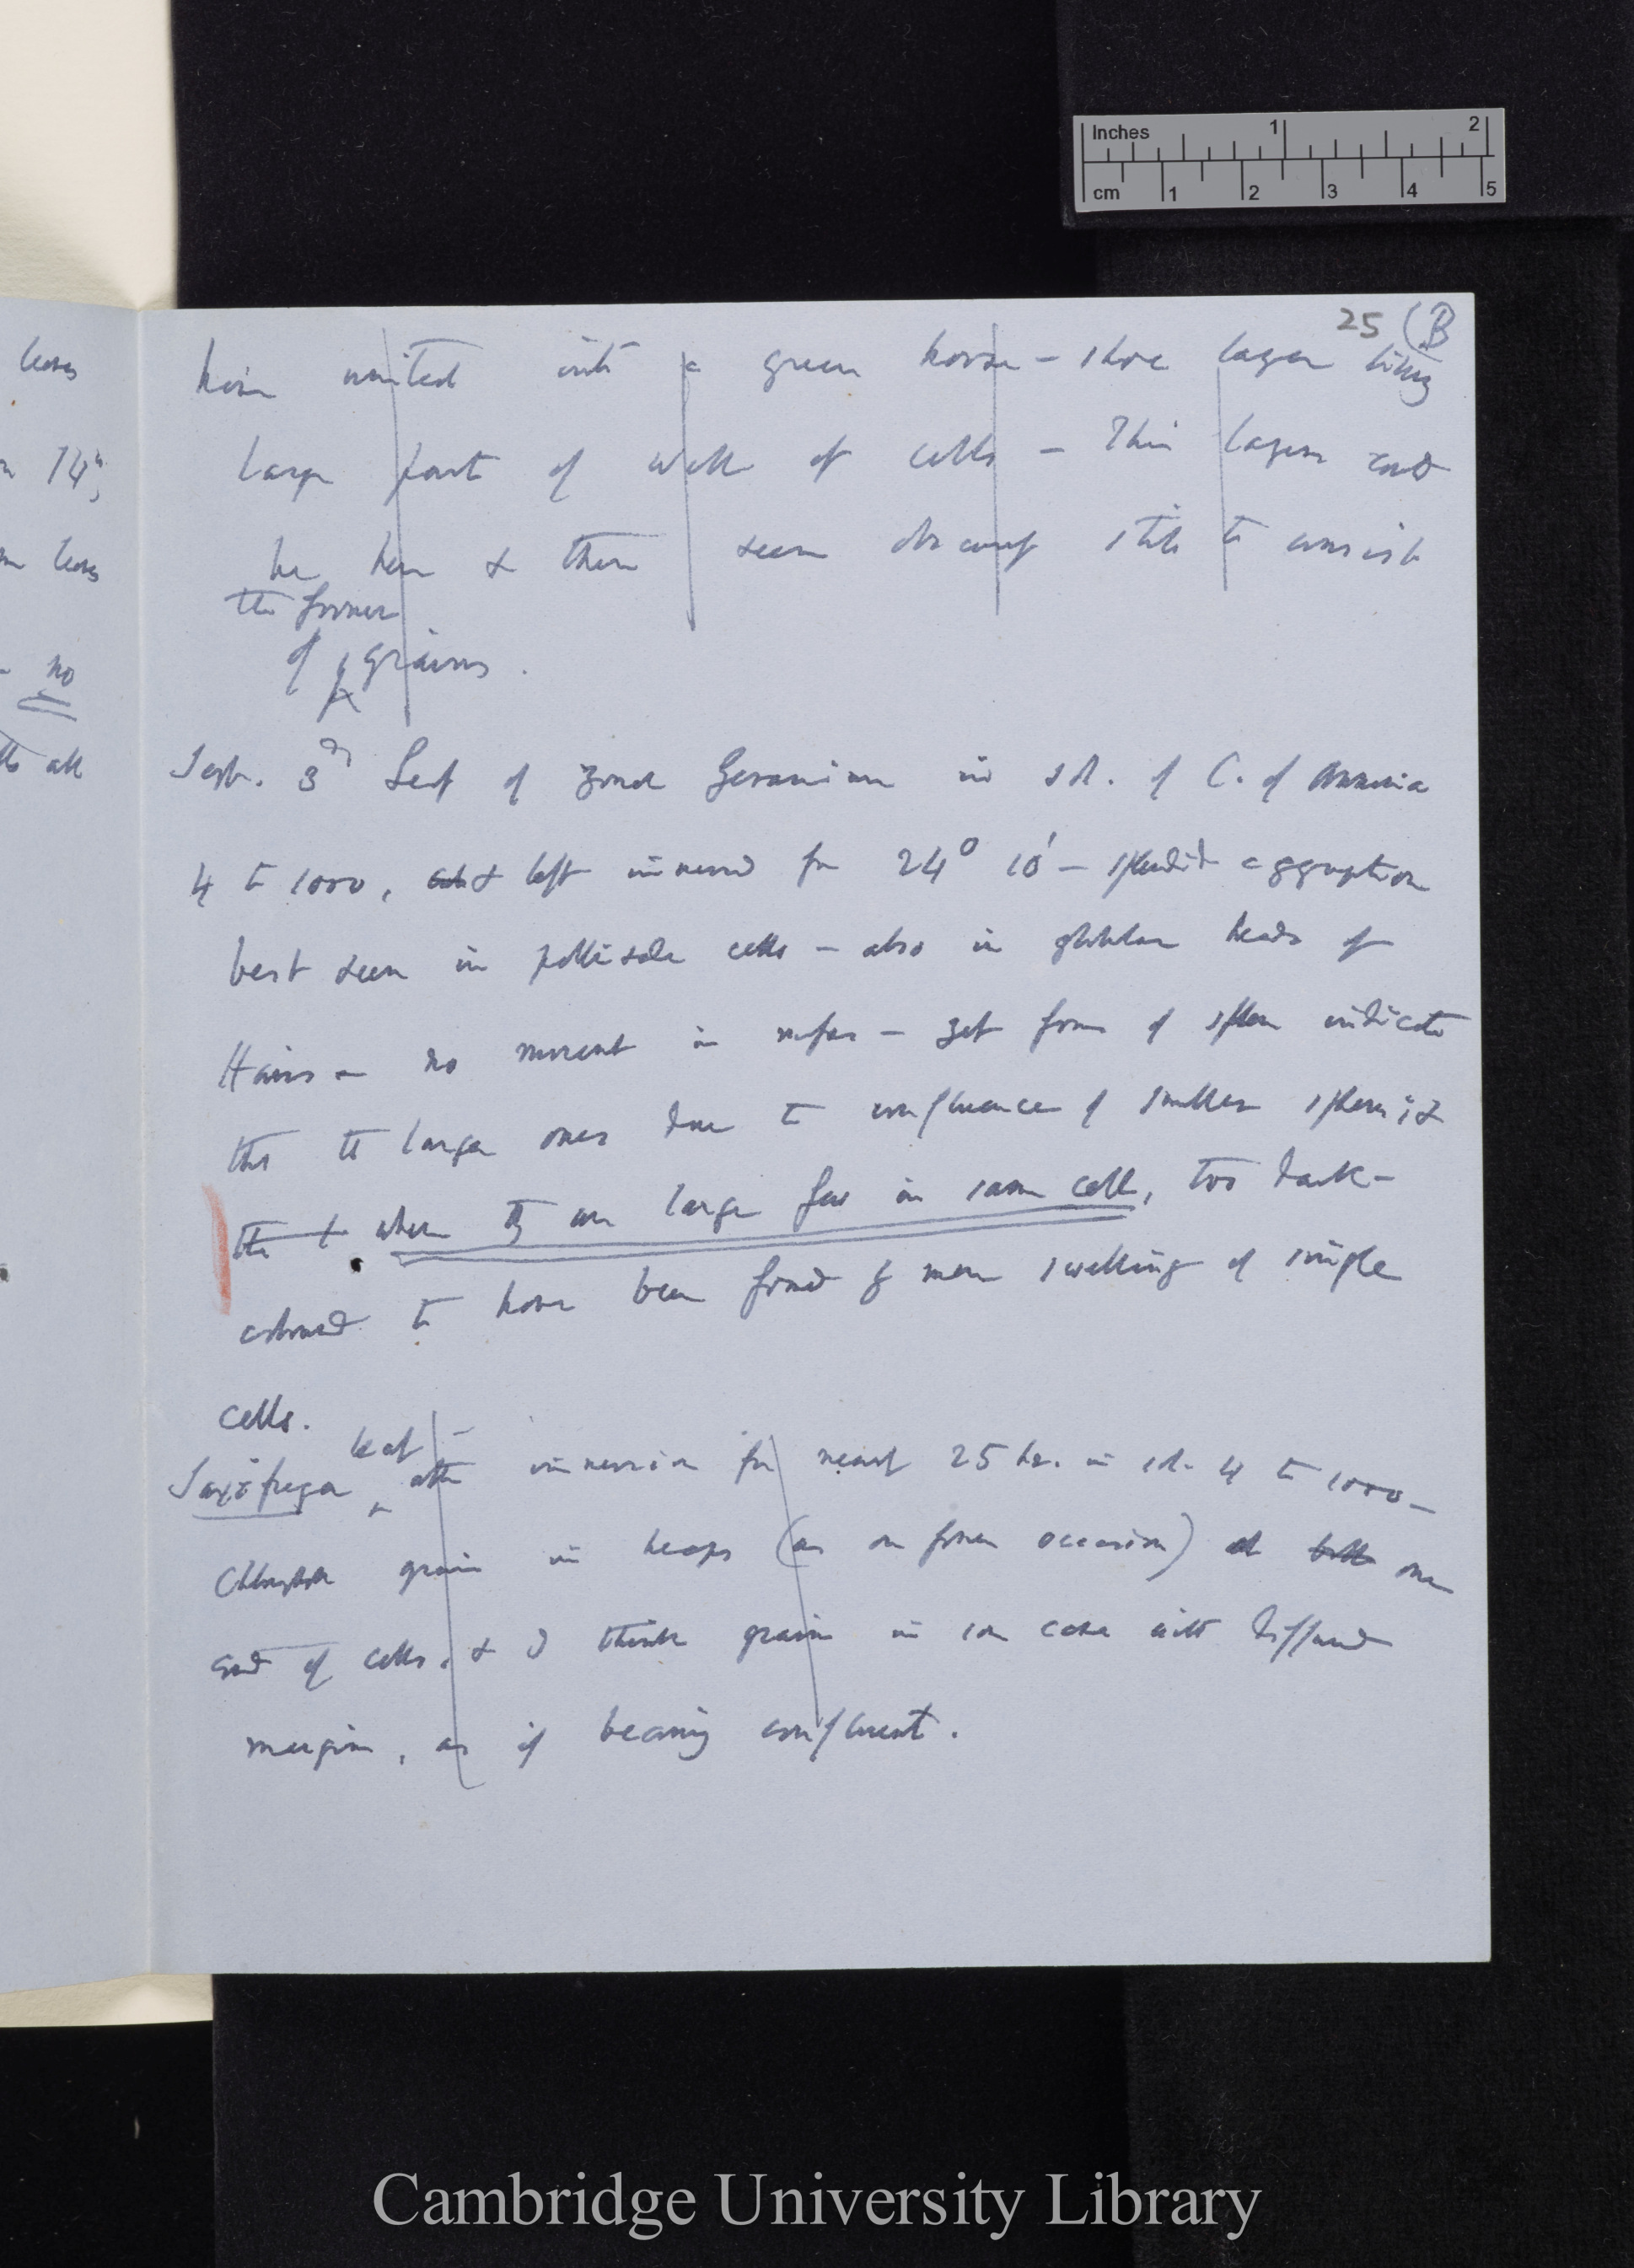 Inches 1 2
cm 1 2 3 4 5
25 (B
united with a green – layer lining
large part of walls of cells – This layer could
be here & there seen obscurely still to consist
the former
of grains.
Sept. 3d Leaf of Geranium in sol. of C. of Ammonia
4 to 1000, & left immersed for 24° 10' – splendid aggregation
best seen in cells – also in globular heads of
Hairs – no movement in – yet form of spheres indicate
that the larger ones due to confluence of smaller spheres; &
the & when they are large few in same cell, too dark-
coloured to have been formed by mere swelling of single
cells.
leaf
Saxifraga after immersion for nearly 25 hrs. in sol. 4 to 1000 –
Chlorophyll grains in heaps (as on former occasion) at both one
end of cells, & I think grains in some case with diffused
margin, as if becoming confluent.
leaves
14
leaves
no
all
Cambridge University Library